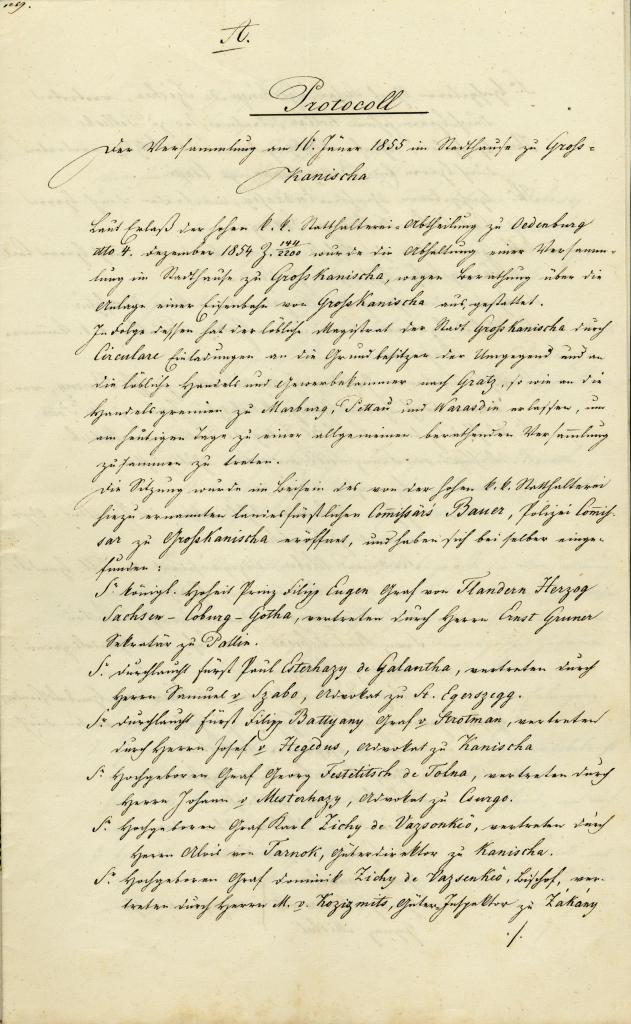 A.
Protocoll
Der Versammlung am 16. Jäner 1855 im Stadthause zu Groß=
Kanischa
Laut Erlaß der hohen k. k. Statthalterei-Abtheilung zu Oedenburg
dto 4. Dezember 1854 Z. 144/2200 wurde die Abhaltung einer Versamm=
lung im Stadthause zu Großkanischa, wegen Berathung über die
Anlage einer Eisenbahn von Großkanischa aus, gestattet.
In Folge dessen hat der löbliche Magistrat der Stadt Großkanischa durch
Circulare Einladungen an die Grundbesitzer der Umgegend und an
die löbliche Handels und Gewerbekammer nach Gratz, so wie an die
Handelsgremien zu Marburg, Pettau und Warasdin erlassen, um
am heutigen Tage zu einer allgemeinen berathenden Versammlung
zusammen zu treten.
Die Sitzung wurde im Beisein des von der hohen k. k. Statthalterei
hiezu ernannten landesfürstlichen Commissärs Bauer, Polizei Commis=
sar zu Großkanischa eröffnet, und haben sich bei selber einge=
funden:
Sr königl. Hoheit Prinz Filipp Eugen Graf von Flandern Herzog
Sachsen-Coburg-Gotha, vertreten durch Herrn Ernst Gruner
Sekretär zu Pallin.
Sr Durchlaucht Fürst Paul Esterhazy de Galantha, vertreten durch
Herrn Samuel v Szabo, Advokat zu St. Egerszegg.
Sr Durchlaucht Fürst Filipp Battyany Graf v Strotman, vertreten
durch Herrn Josef v Hegedus, Advokat zu Kanischa
Sr Hochgeboren Graf Georg Festetitsch de Tolna, vertreten durch
Herrn Johann v Mesterhazy, Advokat zu Csurgo.
Sr Hochgeboren Graf Karl Zichy de Vazsonkiö, vertreten durch
Herrn Alois von Tarnok, Güterdirektor zu Kanischa.
Sr Hochgeboren Graf Dominik Zichy de Vazsenkiö, Bischof, ver=
treten durch Herrn M. v. Kozizmits, Güter-Inspektor zu Zákány
./.